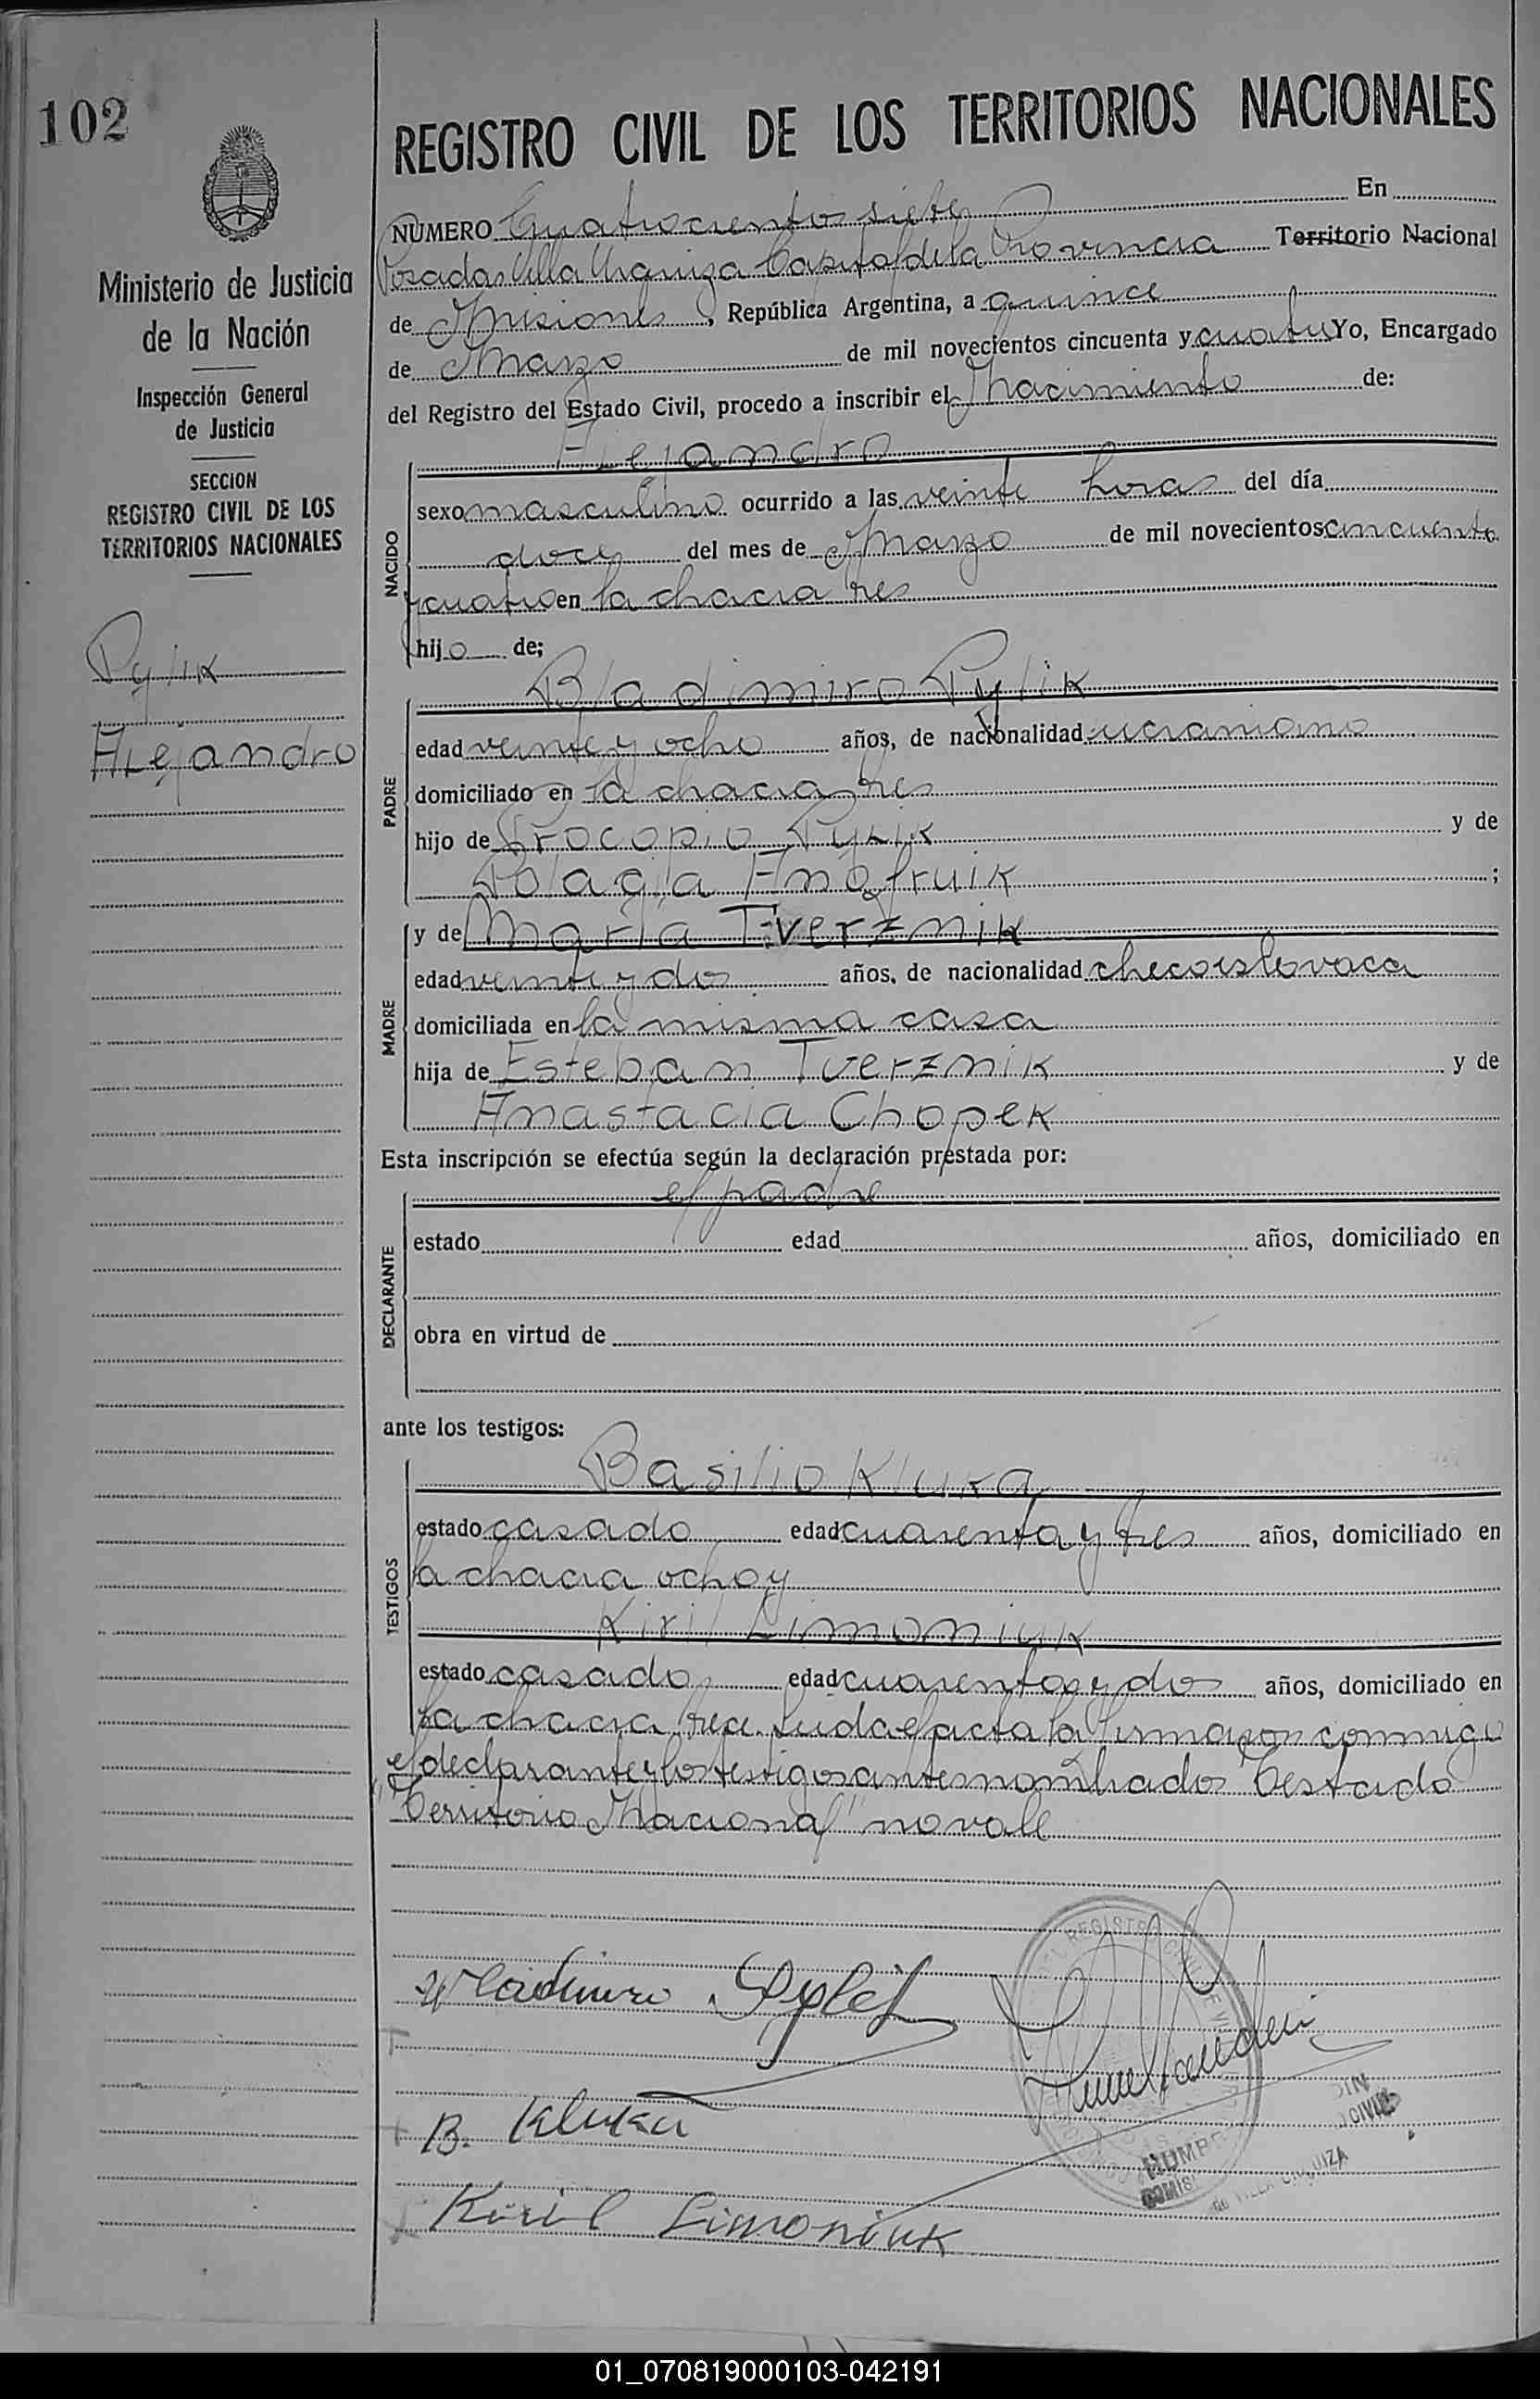 102
REGISTRO CIVIL DE LOS TERRITORIOS NACIONALES
Ministerio de Justicia
de la Nación
Inspección General
de Justicia
SECCION
REGISTRO CIVIL DE LOS
TERRITORIOS NACIONALES
Pylik
Alejandro
NUMERO Cuatrocientos siete En
Posadas Villa Urquiza Capital de la Provincia Territorio Nacional
de Misiones, República Argentina, a quince
de Marzo de mil novecientos cincuenta y cuatro Yo, Encargado
del Registro del Estado Civil, procedo a inscribir el Nacimiento de:
NACIDO
Alejandro
sexo masculino ocurrido a las veinte horas del día
doce del mes de Marzo de mil novecientos cincuenta
y cuatro en la chacra tres
hijo de;
PADRE
Bladimiro Pylik
edad veinte y ocho años, de nacionalidad ucraniano
domiciliado en la chacra tres
hijo de Procopio Pylik y de
Polagia Anofruik ;
MADRE
y de Maria Tverznik
edad veinte y dos años, de nacionalidad checoeslovaca
domiciliada en la misma casa
hija de Esteban Tverznik y de
Anastacia Chopek
Esta inscripción se efectúa según la declaración prestada por:
DECLARANTE
el padre
estado edad años, domiciliado en
obra en virtud de
ante los testigos:
TESTIGOS
Basilio Kluka
estado casado edad cuarenta y tres años, domiciliado en
la chacra ocho y
Kiril Limoniuk
estado casado edad cuarenta y dos años, domiciliado en
la chacra trece. Leida el acta la firmaron conmigo
el declarante y los testigos antes nombrados Testado
"Territorio Nacional" no vale
Wladimiro Pylik
B. Kluka
Kiril Limoniuk
01_070819000103-042191